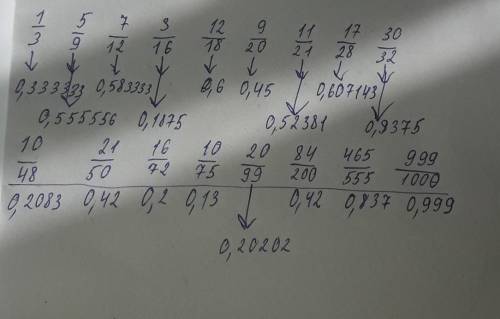 1/3 5/9 7/12 3/16 12/18 9/20 11/21 17/28 30/32
0,333333 0,583333 0,6 0,45 0,607143
0,555556 0,1875 0,52381 0,9375
10/48 21/50 16/72 10/75 20/99 84/200 465/555 999/1000
0,2083 0,42 0,2 0,13 0,42 0,837 0,999
0,20202